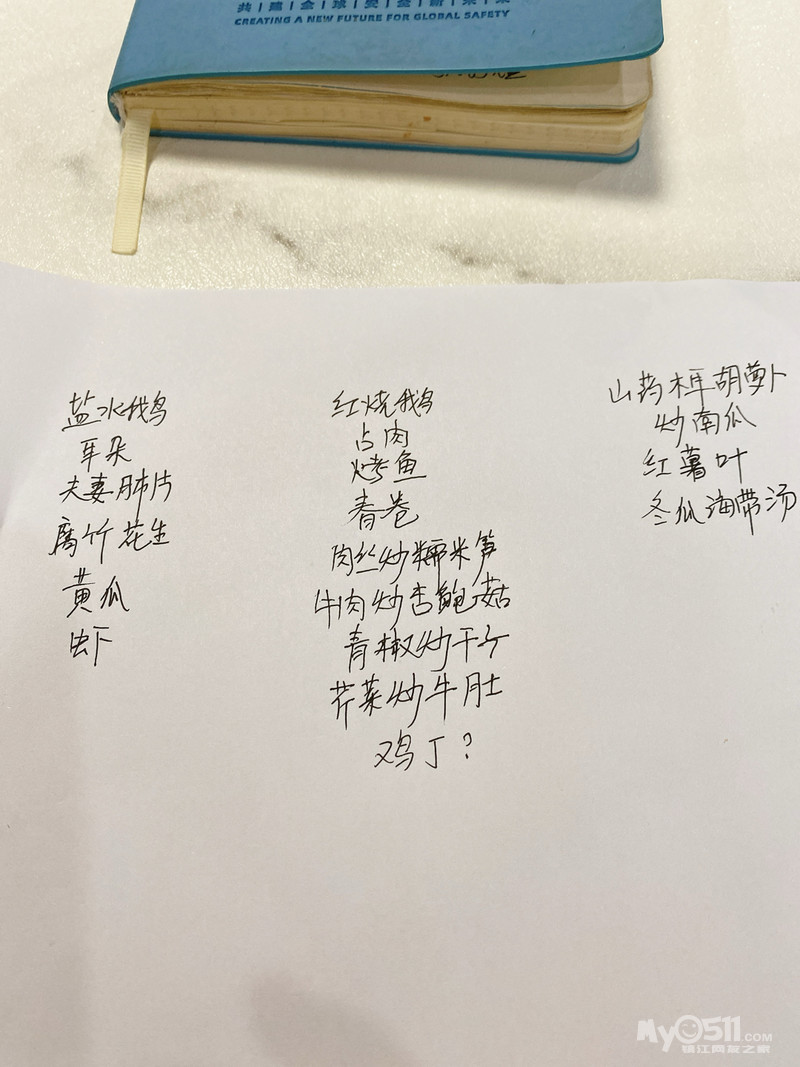 共建全球安全新未来
CREATING A NEW FUTURE FOR GLOBAL SAFETY
盐水鹅
耳朵
夫妻肺片
腐竹花生
黄瓜
虾
红烧鹅
占肉
烤鱼
春卷
肉丝炒糯米笋
牛肉炒杏鲍菇
青椒炒干子
芹菜炒牛肚
鸡丁？
山药木耳胡萝卜
炒南瓜
红薯叶
冬瓜海带汤
My0511.COM
镇江网友之家